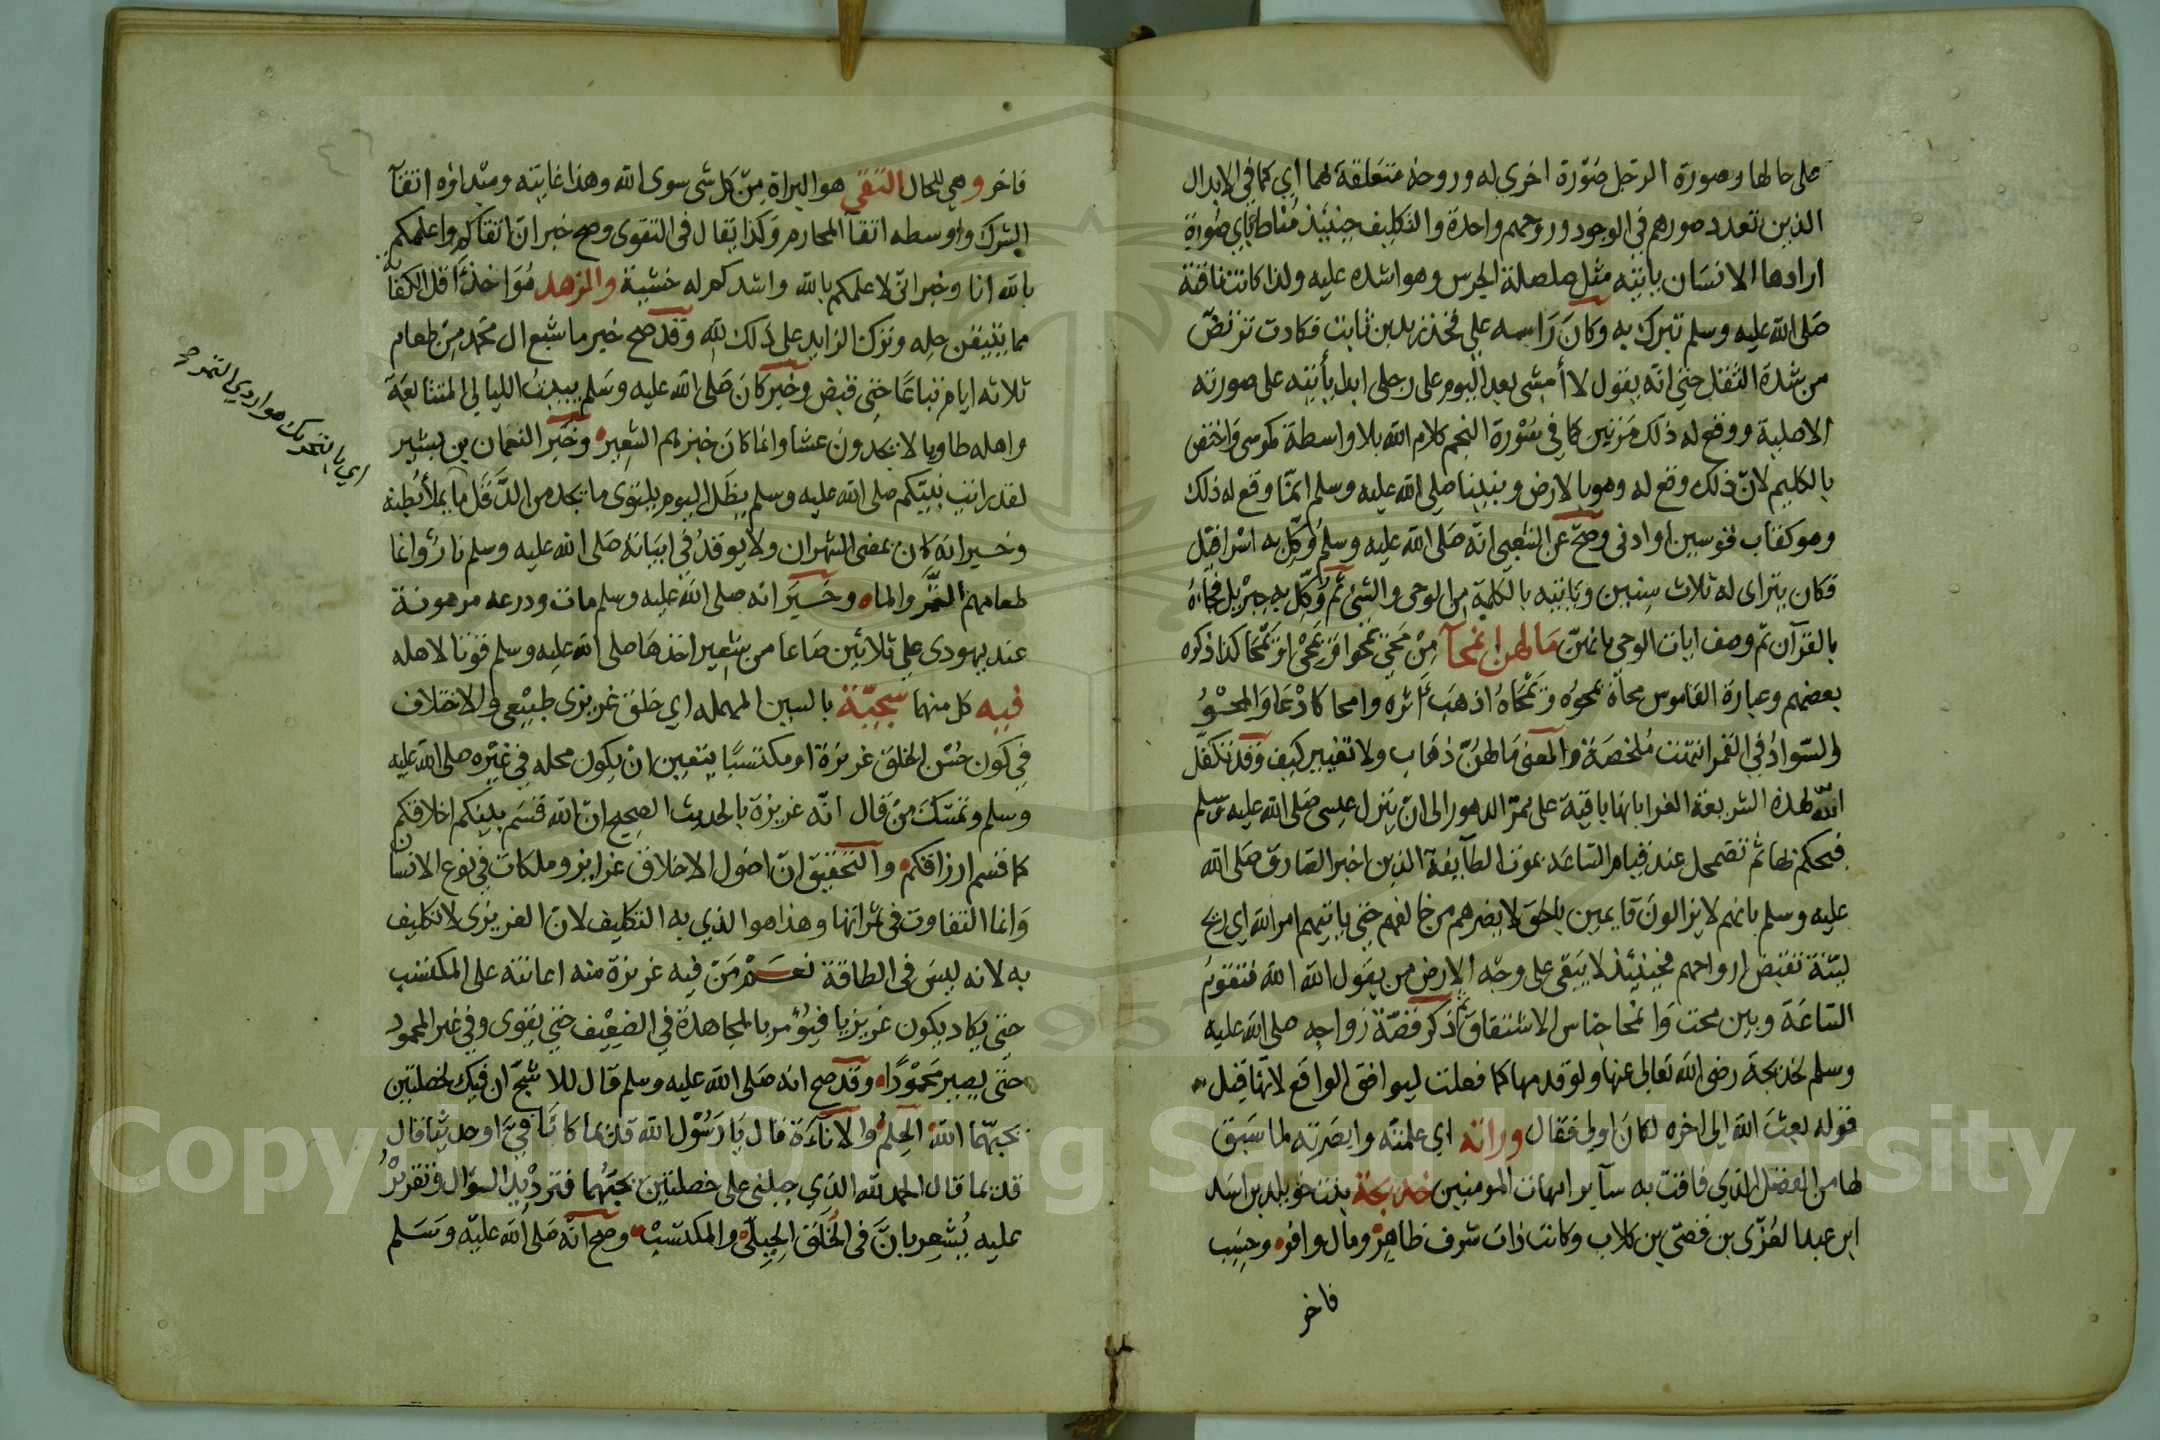 على حالها وصورة الرجل صورة اخرى له وروحه متعلقة بهما اي كما في الابدال
الذين تعدد صورهم في الوجود وروحهم واحدة والتكليف حينئذ مناط باي صورة
ارادها الانسان ياتيه مثل صلصلة الجرس وهو اشده عليه ولذا كانت ناقة
صلى الله عليه وسلم تبرك به وكان راسه على فخذ زيد بن ثابت فكادت ترتض
من شدة الثقل حتى انه يقول لا أمشي بعد اليوم على رجلي ابدا يأتيه على صورته
الاصلية ووقع له ذلك مرتين كما في سورة النجم كلام الله بلا واسطة كموسى واختص
بالكليم لان ذلك وقع له وهو بالارض ونبينا صلى الله عليه وسلم انما وقع له ذلك
وهو كقاب قوسين او ادنى وصح عن الشعبي انه صلى الله عليه وسلم وكل به اسرافيل
فكان يتراى له ثلاث سنين وياتيه بالكلمة من الوحي والشئ ثم وكل به جبريل فجاءه
بالقرآن ثم وصف ايات الوحي بانهن ما لهن انمحآ من محى يمحو او يمحي او يمحا كذا ذكره
بعضهم وعبارة القاموس محاه يمحوه ويمحاه اذهب أثره وامحا كادعا والمحو
السواد في القمر انتهت ملخصة والمعنى ما لهن ذهاب ولا تغيير كيف وقد تكفل
الله لهذه الشريعة الغرا بانها باقية على ممر الدهور الى ان ينزل عيسى صلى الله عليه وسلم
فيحكم بها ثم تضمحل عند قيام الساعة بموت الطآيفة الذين اخبر الصادق صلى الله
عليه وسلم بانهم لا يزالون قايمين بالحق لا يضرهم من خالفهم حتى ياتيهم امر الله اي ريح
لينة تقبض ارواحهم فحينئذ لا يبقى على وجه الارض من يقول الله الله فتقوم
الساعة وبين محت وانمحا جناس الاشتقاق ثم ذكر قصة زواجه صلى الله عليه
وسلم لخديجة رضي الله تعالى عنها ولو قدمها كما فعلت ليوافق الواقع لانها قبل
قوله بعث الله الى اخره لكان اولى فقال وراته اي علمته وابصرته لما سبق
لها من الفضل الذي فاقت به سآير امهات المومنين خديجة بنت خويلد بن اسد
ابن عبد العزى بن قصي بن كلاب وكانت ذات شرف ظاهر ومال وافر وحسب
فاخر
فاخر وهي للحال التقى هو البراة من كل شي سوى الله وهذا غايته ومبداؤه اتقآ
الشرك واوسطه اتقآ المحارم وكذا يقال في التقوى وصح خبر ان اتقاكم واعلمكم
بالله انا وخبر اني لاعلمكم بالله واشدكم له خشية والزهد هو اخذ أقل الكفاية
مما يتيقن حله وترك الزايد على ذلك لله وقد صح خبر ما شبع ال محمد من طعام
ثلاثه ايام تباعا حتى قبض وخبر كان صلى الله عليه وسلم يبيت الليالي المتتابعة
واهله طاويا لا يجدون عشا وانما كان خبزهم الشعير وخبر النعمان بن بشير
لقد رايت نبيكم صلى الله عليه وسلم يظل اليوم يلتوي ما يجد من الدقل ما يملأ بطنه
وخبر انه كان يمضي الشهران ولا يوقد في ابياته صلى الله عليه وسلم نار وانما
طعامهم التمر والماء وخبر انه صلى الله عليه وسلم مات ودرعه مرهونة
عند يهودي على ثلاثين صاعا من شعير اخذها صلى الله عليه وسلم قوتا لاهله
فيه كل منهما سجية بالسين المهمله اي خلق غريزي طبيعي والاختلاف
في كون حسن الخلق غريزة او مكتسبا يتعين ان يكون محله في غيره صلى الله عليه
وسلم وتمسك من قال انه غريزة بالحديث الصحيح ان الله قسم بينكم اخلاقكم
كما قسم ارزاقكم والتحقيق ان اصول الاخلاق غرايز وملكات في نوع الانسان
وانما التفاوت في ثمراتها وهذا هو الذي به التكليف لان الغريزي لا تكليف
به لانه ليس في الطاقة نعم من فيه غريزة منه اعانته على المكتسب
حتى يكاد يكون غريزيا فيؤمر بالمجاهدة في الضعيف حتى يقوى وفي غير المحمود
حتى يصير محمودا وقد صح انه صلى الله عليه وسلم قال للاشج ان فيك لخصلتين
يحبهما الله الحلم والاناءة قال يا رسول الله قديما كانا في او حديثا قال
قديما قال الحمد لله الذي جبلني على خصلتين يحبهما فترديد السؤال وتقريره
عليه يشعر بان في الخلق الجبلي والمكتسب وصح انه صلى الله عليه وسلم
اي بالتحريك هو اردي التمر ص